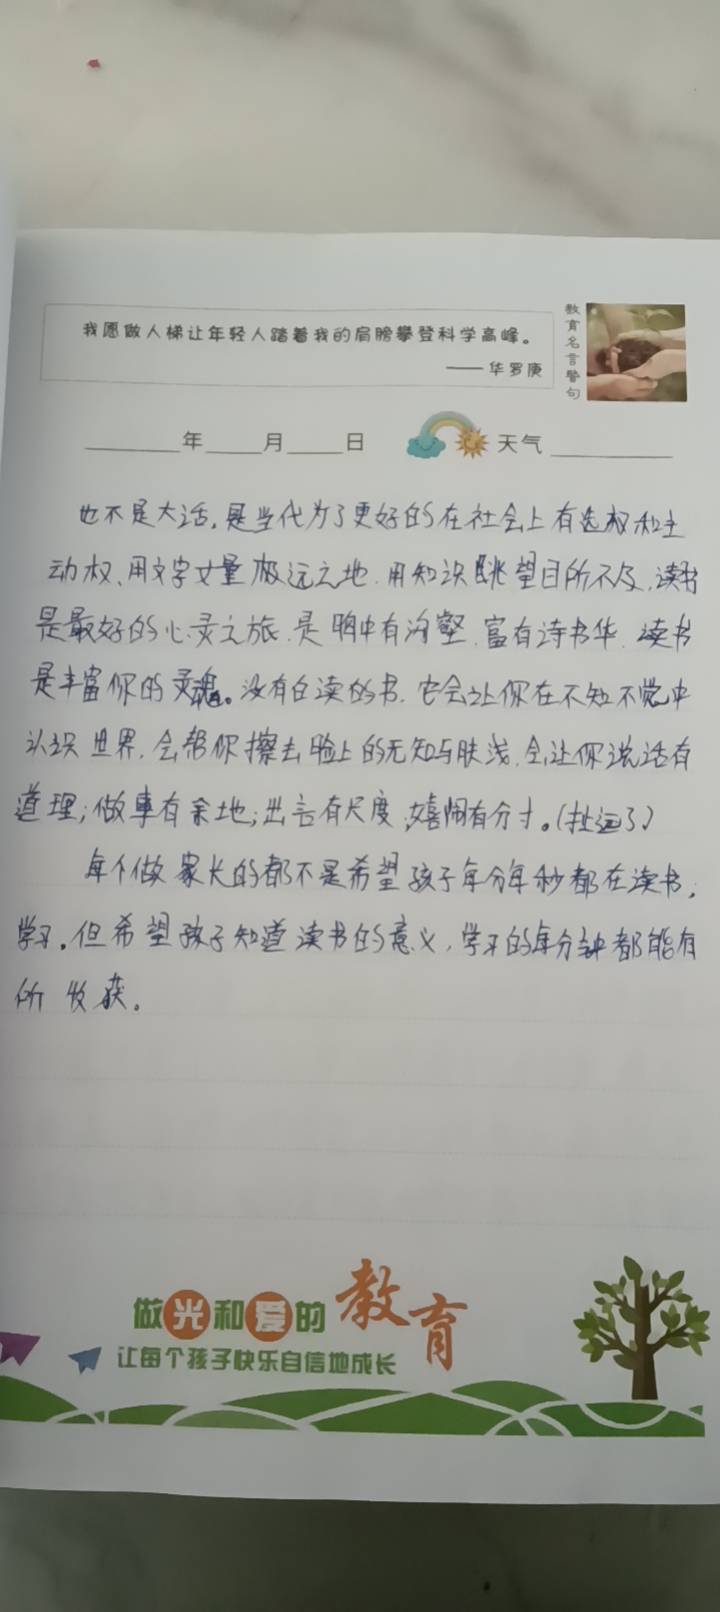 我愿做人梯让年轻人踏着我的肩膀攀登科学高峰。
——华罗庚
教育名言警句
年 月 日 天气
也不是大话,是当代为了更好的在社会上有选权和主
动权、用文字丈量极远之地.用知识眺望目所不及.读书
是最好的心灵之旅.是胸中有沟壑.富有诗书华.读书
是丰富你的灵魂。没有白读的书.它会让你在不知不觉中
认识世界.会帮你擦去脸上的无知与肤浅.会让你说话有
道理;做事有余地;出言有尺度;嬉闹有分寸。(扯远了)
每个做家长的都不是希望孩子每分每秒都在读书,
学习。但希望孩子知道读书的意义.学习的每分钟都能有
所收获。
做光和爱的教育
让每个孩子快乐自信地成长